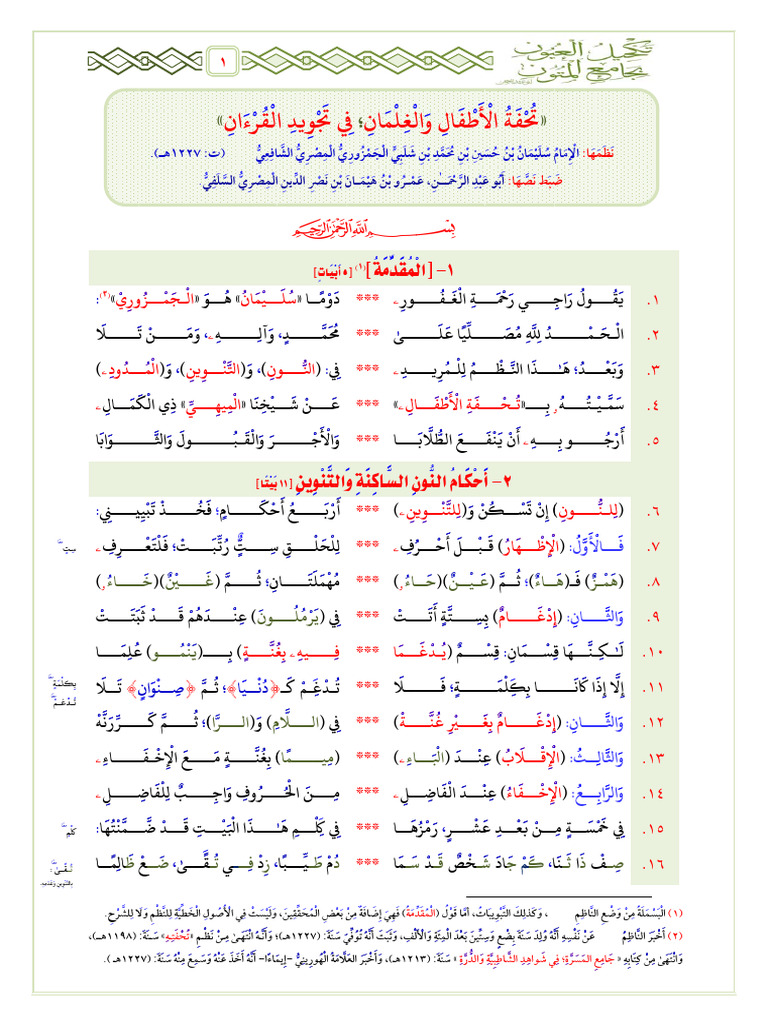 تكحيل العيون
بجامع المتون
١
«تُحْفَةُ الْأَطْفَالِ وَالْغِلْمَانِ؛ فِي تَجْوِيدِ الْقُرْءَانِ»
نَظَمَهَا: الْإِمَامُ سُلَيْمَانُ بْنُ حُسَيْنِ بْنِ مُحَمَّدِ بْنِ شَلَبِيِّ الْجَمْزُورِيُّ الْمِصْرِيُّ الشَّافِعِيُّ (ت: ١٢٢٧هـ).
ضَبَطَ نَصَّهَا: أَبُو عَبْدِ الرَّحْمَـٰنِ، عَمْرُو بْنُ هَيْمَانَ بْنِ نَصْرِ الدِّينِ الْمِصْرِيُّ السَّلَفِيُّ.
بِسْمِ اللَّهِ الرَّحْمَٰنِ الرَّحِيمِ
١- [الْمُقَدِّمَةُ](١) [٥ أَبْيَاتٍ]
١. يَقُولُ رَاجِي رَحْمَةِ الْغَفُورِے *** دَوْمًا «سُلَيْمَانُ» هُوَ «الْجَمْزُورِيْ»(٢):
٢. الْحَمْدُ لِلَّهِ مُصَلِّيًا عَلَىٰ *** مُحَمَّدٍ، وَآلِهِے، وَمَنْ تَلَا
٣. وَبَعْدُ؛ هَـٰذَا النَّظْمُ لِلْمُرِيدِے *** فِي: (النُّونِ)، وَ(التَّنْوِينِ)، وَ(الْمُدُودِے)
٤. سَمَّيْتُهُو بِـ«تُحْفَةِ الْأَطْفَالِے» *** عَنْ شَيْخِنَا «الْمِيهِيِّ» ذِي الْكَمَالِے
٥. أَرْجُو بِهِے أَنْ يَنْفَعَ الطُّلَّابَا *** وَالْأَجْرَ وَالْقَبُولَ وَالثَّوَابَا
٢- أَحْكَامُ النُّونِ السَّاكِنَةِ وَالتَّنْوِينِ [١١ بَيْتًا]
٦. (لِلنُّونِ) إِنْ تَسْكُنْ وَ(لِلتَّنْوِينِے) *** أَرْبَعُ أَحْكَامٍ؛ فَخُذْ تَبْيِينِي:
٧. فَالْأَوَّلُ: (الْإِظْهَارُ) قَبْلَ أَحْرُفِے *** لِلْحَلْقِ سِتٌّ رُتِّبَتْ؛ فَلْتَعْرِفِے
سِتٍّ
٨. (هَمْزٌ) فَـ(هَاءٌ)؛ ثُمَّ (عَيْنٌ)(حَاءُو) *** مُهْمَلَتَانِ؛ ثُمَّ (غَيْنٌ)(خَاءُو)
٩. وَالثَّانِ: (إِدْغَامٌ) بِسِتَّةٍ أَتَتْ *** فِي (يَرْمُلُونَ) عِنْدَهُمْ قَدْ ثَبَتَتْ
١٠. لَـٰكِنَّهَا قِسْمَانِ: قِسْمٌ (يُدْغَمَا *** فِيهِے بِغُنَّةٍ) بِـ(يَنْمُو) عُلِمَا
١١. إِلَّا إِذَا كَانَا بِكِلْمَةٍ؛ فَلَا *** تُدْغِمْ كَـ﴿دُنْيَا﴾؛ ثُمَّ ﴿صِنْوَانٍ﴾ تَلَا
بِكِلْمَةٍ
تُدْغَمْ
١٢. وَالثَّانِ: (إِدْغَامٌ بِغَيْرِ غُنَّةْ) *** فِي (اللَّامِ) وَ(الرَّا)؛ ثُمَّ كَرِّرَنَّهْ
١٣. وَالثَّالِثُ: (الْإِقْلَابُ) عِنْدَ (الْبَاءِے) *** (مِيمًا) بِغُنَّةٍ مَعَ الْإِخْفَاءِے
١٤. وَالرَّابِعُ: (الْإِخْفَاءُ) عِنْدَ الْفَاضِلِے *** مِنَ الْحُرُوفِ وَاجِبٌ لِلْفَاضِلِے
١٥. فِي خَمْسَةٍ مِنْ بَعْدِ عَشْرٍ، رَمْزُهَا *** فِي كِلْمِ هَـٰذَا الْبَيْتِ قَدْ ضَمَّنْتُهَا:
كَلْمِ
١٦. صِفْ ذَا ثَنَا، كَمْ جَادَ شَخْصٌ قَدْ سَمَا *** دُمْ طَيِّبًا، زِدْ فِي تُقًى، ضَعْ ظَالِمًا
تُقَىٰ:
بِالتَّنْوِينِ وَعَدَمِهِ
(١) الْبَسْمَلَةُ مِنْ وَضْعِ النَّاظِمِ ، وَكَذَلِكَ التَّبْوِيبَاتُ، أَمَّا قَوْلُ (الْمُقَدِّمَةُ) فَهِيَ إِضَافَةٌ مِنْ بَعْضِ الْمُحَقِّقِينَ، وَلَيْسَتْ فِي الْأُصُولِ الْخَطِّيَّةِ لِلنَّظْمِ وَلَا لِلشَّرْحِ.
(٢) أَخْبَرَ النَّاظِمُ عَنْ نَفْسِهِ أَنَّهُ وُلِدَ سَنَةَ بِضْعٍ وَسِتِّينَ بَعْدَ الْمِئَةِ وَالْأَلْفِ، وَثَبَتَ أَنَّهُ تُوُفِّيَ سَنَةَ: (١٢٢٧هـ)؛ وَأَنَّهُ انْتَهَىٰ مِنْ نَظْمِ «تُحْفَتِهِ» سَنَةَ: (١١٩٨هـ)،
وَانْتَهَىٰ مِنْ كِتَابِهِ «جَامِعِ الْمَسَرَّةِ؛ فِي شَوَاهِدِ الشَّاطِبِيَّةِ وَالدُّرَّةِ» سَنَةَ: (١٢١٣هـ)، وَأَخْبَرَ الْعَلَّامَةُ الْهُورِينِيُّ -إِيمَاءً- أَنَّهُ أَخَذَ عَنْهُ وَسَمِعَ مِنْهُ سَنَةَ: (١٢٢٧هـ).